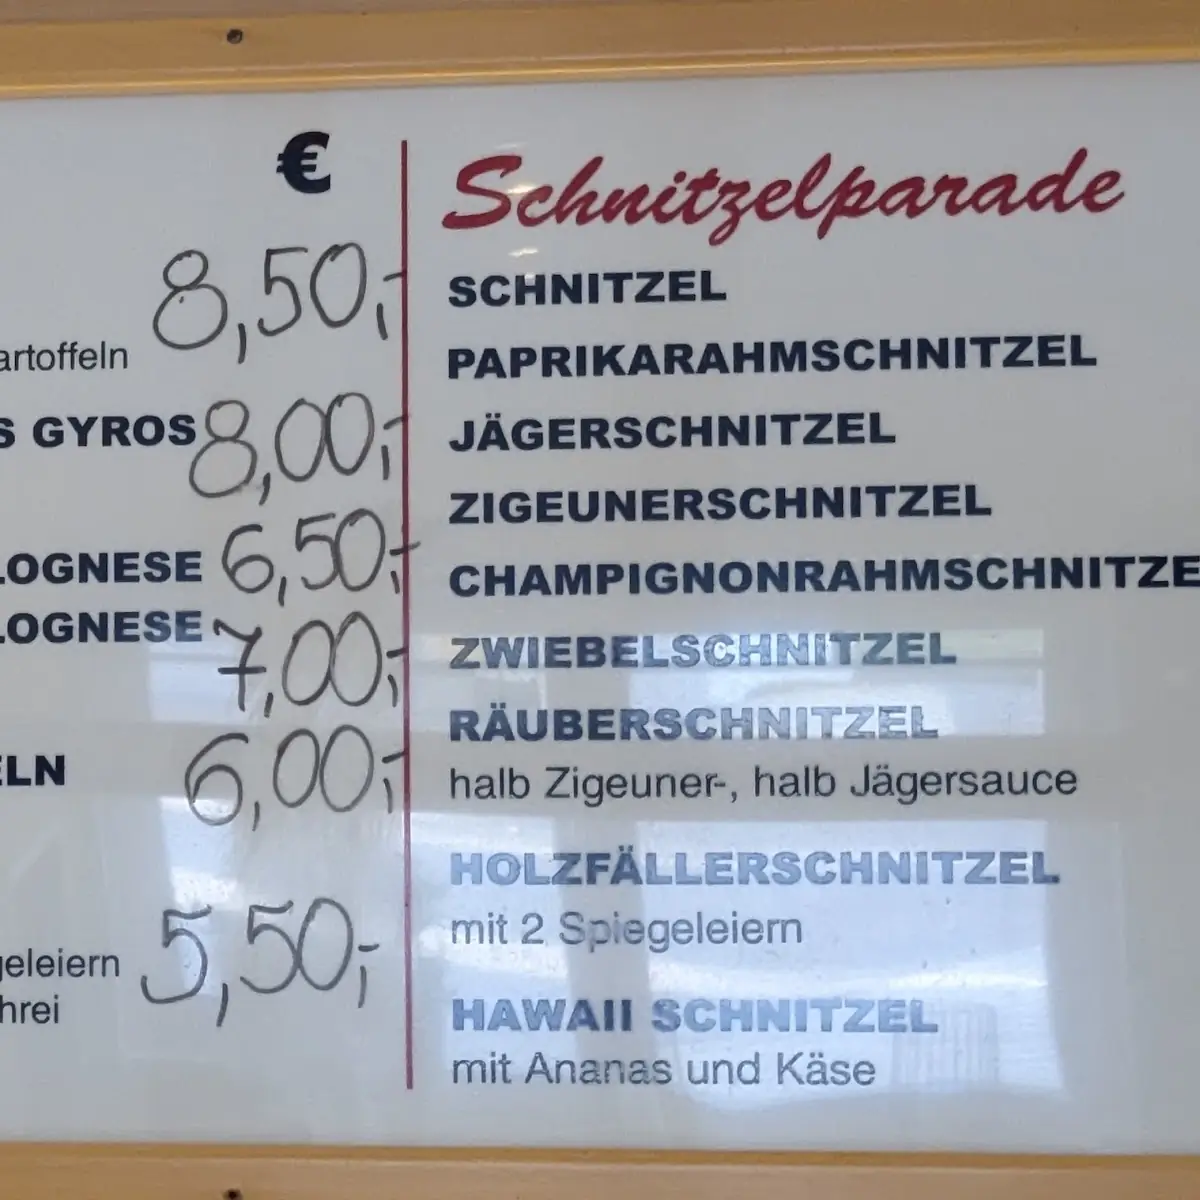 €
8,50,-
artoffeln
S GYROS 8,00,-
LOGNESE 6,50,-
LOGNESE 7,00,-
ELN 6,00,-
5,50,-
geleiern
hrei
Schnitzelparade
SCHNITZEL
PAPRIKARAHMSCHNITZEL
JÄGERSCHNITZEL
ZIGEUNERSCHNITZEL
CHAMPIGNONRAHMSCHNITZE
ZWIEBELSCHNITZEL
RÄUBERSCHNITZEL
halb Zigeuner-, halb Jägersauce
HOLZFÄLLERSCHNITZEL
mit 2 Spiegeleiern
HAWAII SCHNITZEL
mit Ananas und Käse